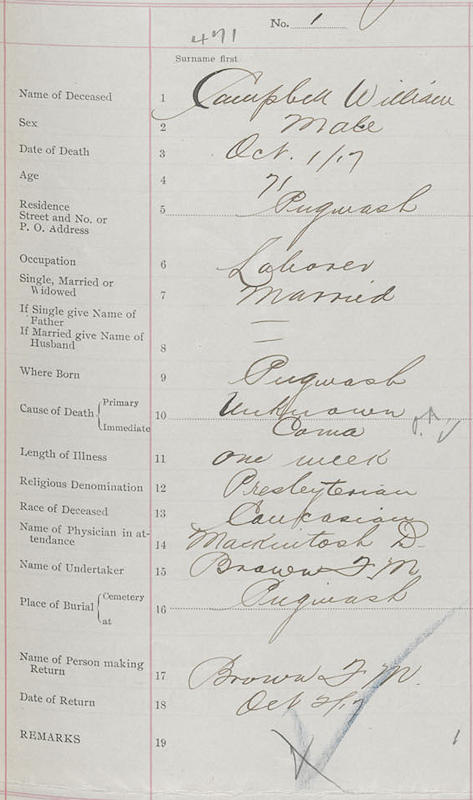 No. 1
471
Surname first
Name of Deceased 1 Campbell William
Sex 2 Male
Date of Death 3 Oct. 1/17
Age 4 71
Residence
Street and No. or 5 Pugwash
P. O. Address
Occupation 6 Laborer
Single, Married or
Widowed 7 Married
If Single give Name of
Father —
If Married give Name of
Husband 8 —
Where Born 9 Pugwash
Cause of Death { Primary 10 Unknown
Immediate Coma
Length of Illness 11 one week
Religious Denomination 12 Presbyterian
Race of Deceased 13 Caucasian
Name of Physician in at-
tendance 14 Mackintosh D.
Name of Undertaker 15 Brown F. M.
Place of Burial { Cemetery 16 Pugwash
at
Name of Person making
Return 17 Brown F. M.
Date of Return 18 Oct 2/17
REMARKS 19 1